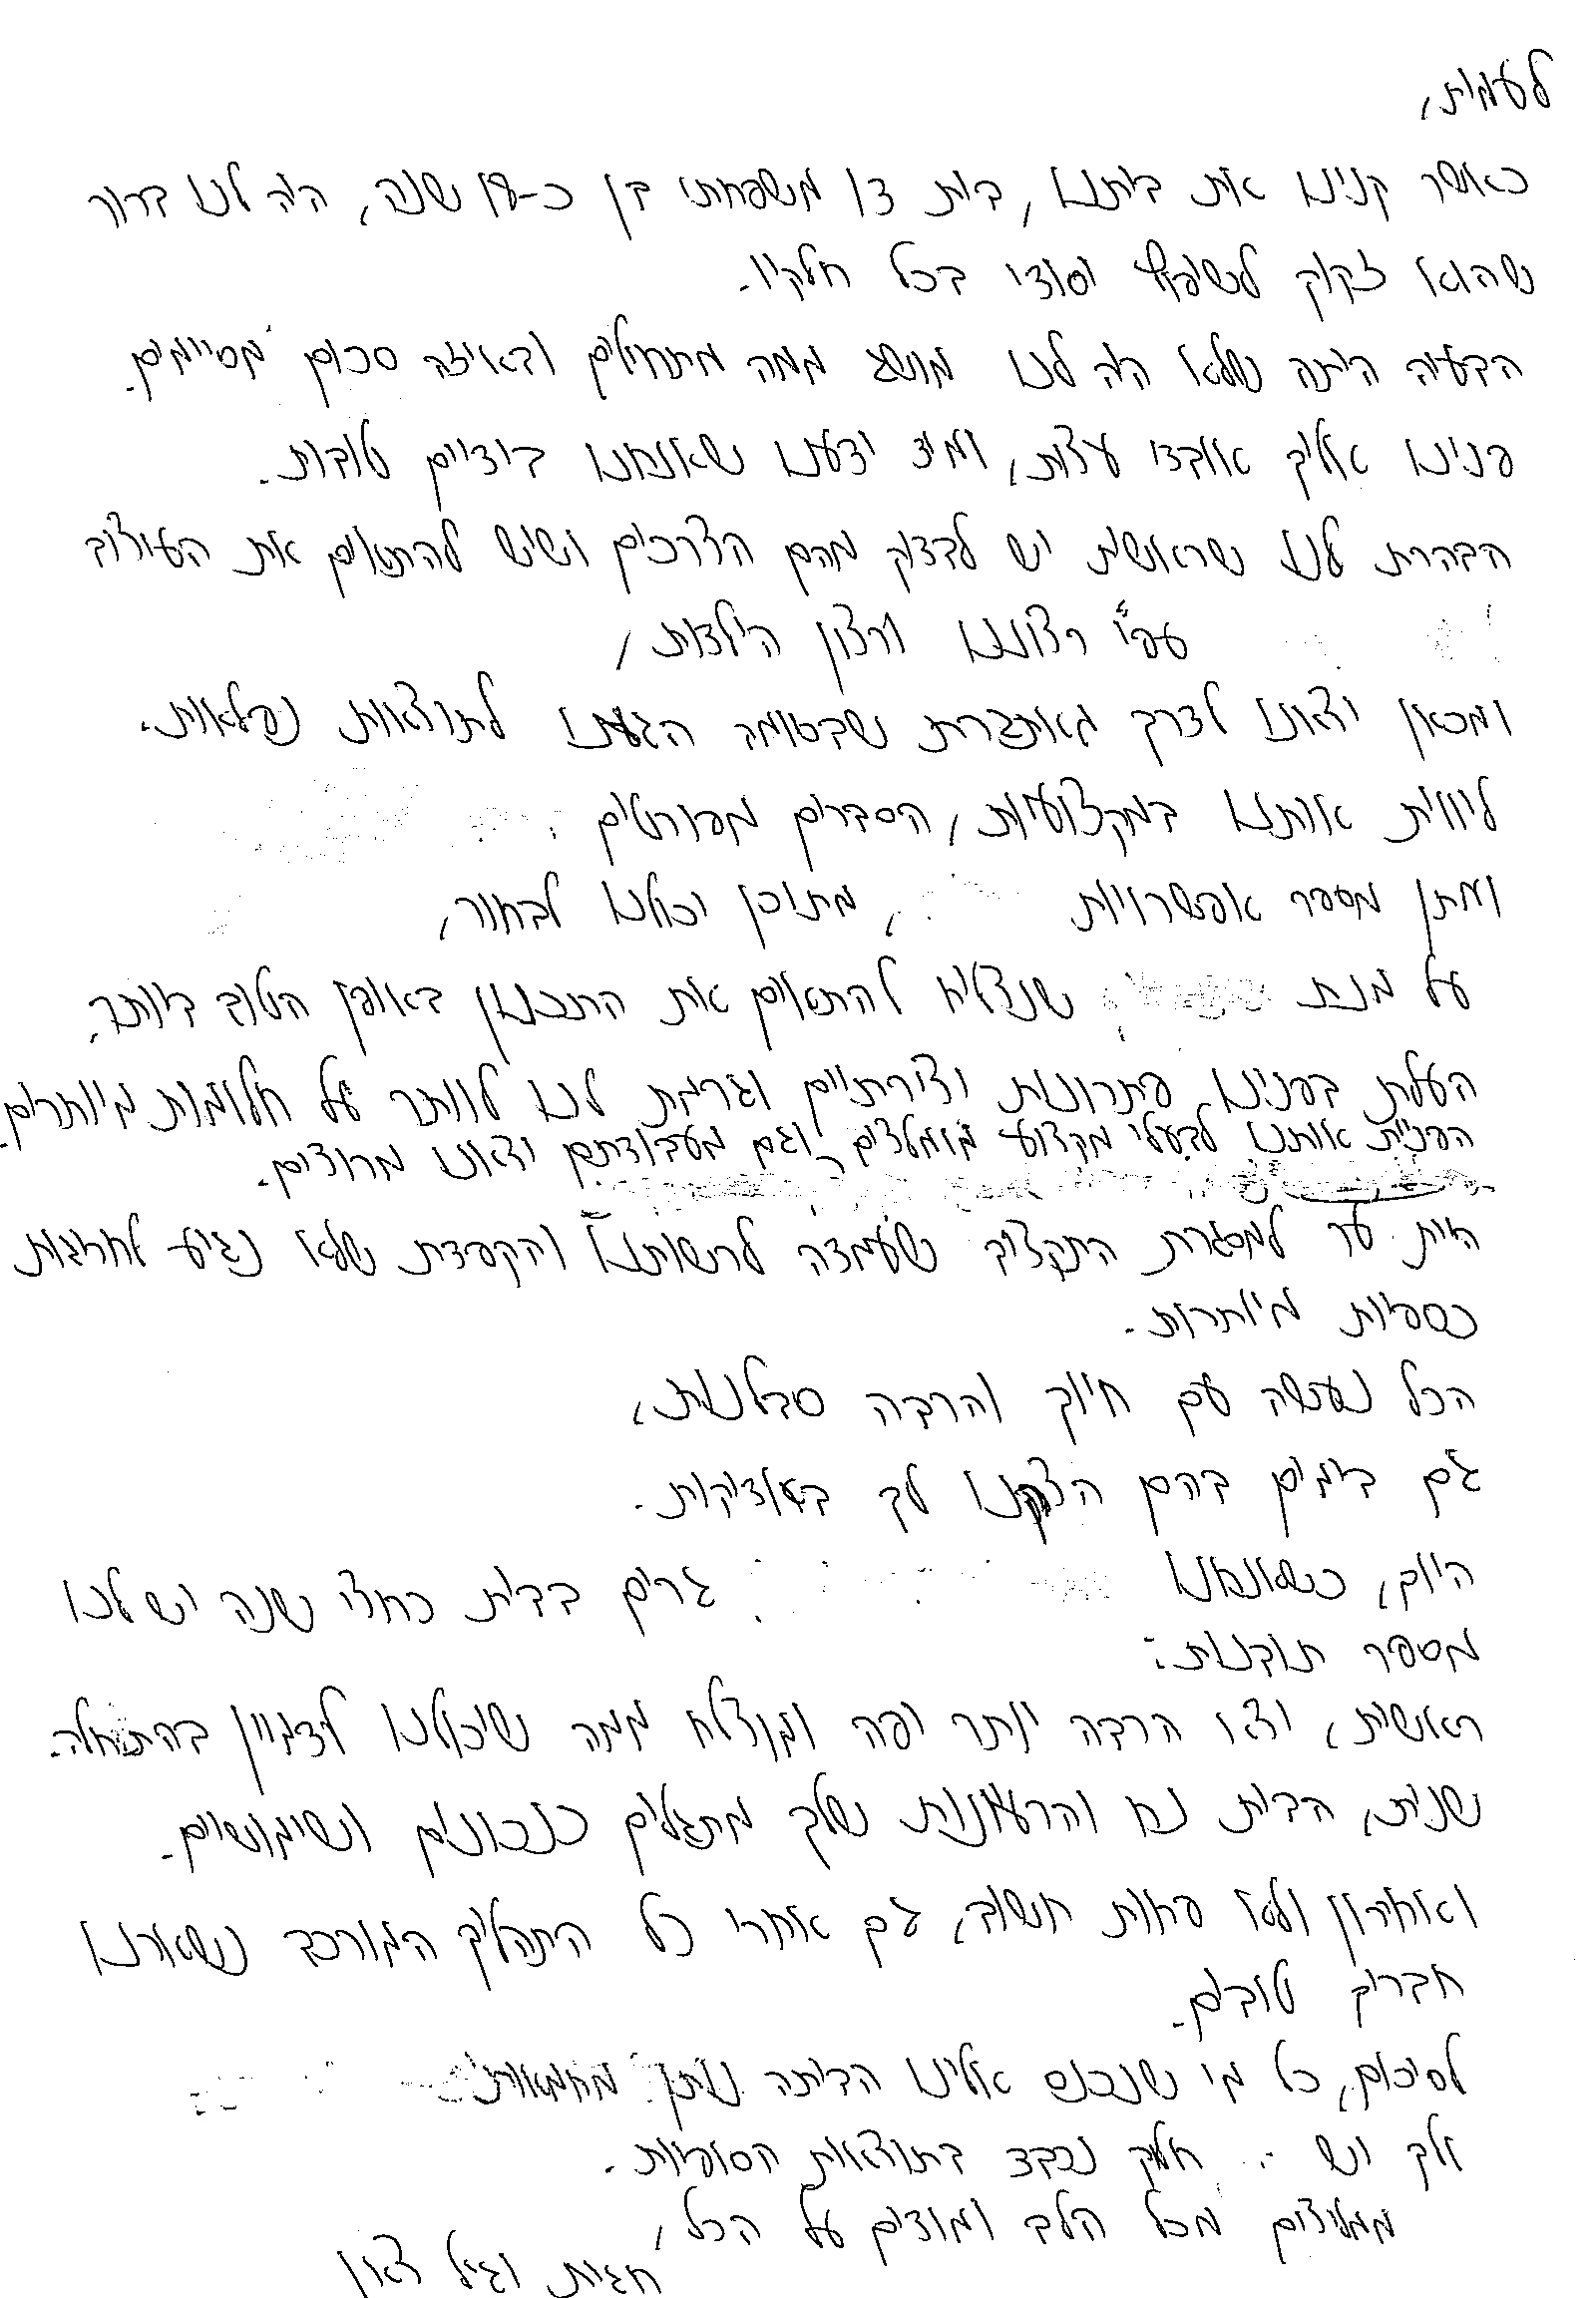 לעמית,
כאשר קנינו את ביתנו, בית דו משפחתי בן כ-19 שנה, היה לנו ברור
שהוא זקוק לשיפוץ יסודי בכל חלקיו.
הבעיה היתה שלא היה לנו מושג ממה מתחילים ובאיזה סכום מסיימים.
פנינו אליך אובדי עצות, ומיד ידענו שאנחנו בידיים טובות.
הבהרת לנו שראשית יש לבדוק מהם הצרכים ושיש להתאים את העיצוב
עפ"י רצוננו ורצון הילדות,
ומכאן יצאנו לדרך מאתגרת שבסופה הגענו לתוצאות נפלאות.
לווית אותנו במקצועיות, הסברים מפורטים
ומתן מספר אפשרויות, מתוכן יכולנו לבחור,
על מנת שנצליח להתאים את התכנון באופן הטוב ביותר.
העלת בפנינו פתרונות יצירתיים וגרמת לנו לוותר על חלומות מיותרים.
הפנית אותנו לבעלי מקצוע מומלצים וגם מעבודתם יצאנו מרוצים.
היית ער למסגרת התקציב שעמדה לרשותנו והקפדת שלא נגיע לחריגות
כספיות מיותרות.
הכל נעשה עם חיוך והרבה סבלנות,
גם בימים בהם הצקנו לך באדיקות.
היום, כשאנחנו גרים בבית כחצי שנה יש לנו
מספר תובנות:
ראשית, יצא הרבה יותר יפה ומוצלח ממה שיכולנו לדמיין בהתחלה.
שנית, הבית נח והרעיונות שלך מתגלים כנכונים ושימושיים.
ואחרון ולא פחות חשוב, גם אחרי כל התהליך המורכב נשארנו
חברים טובים.
לסיכום, כל מי שנכנס אלינו הביתה נותן מחמאות
ולך יש חלק נכבד בתוצאות הסופיות.
ממליצים מכל הלב ומודים על הכל,
חגית וגיל ציון